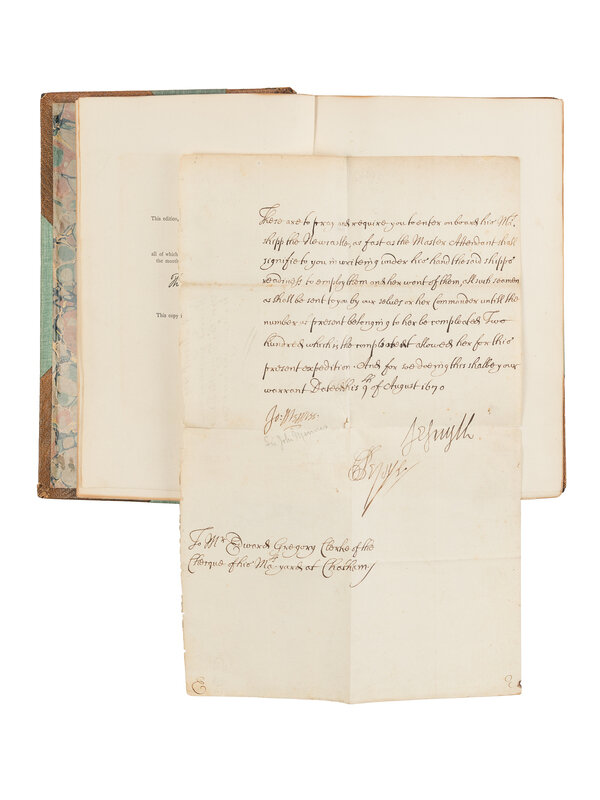 This edition,
all of which
the month
Th
This copy i
These are to pray and require you to enter on board his Ma:ts
shipp the Newcastle, as fast as the Master Attendant shall
signifie to you in writeing under his hand the said shipps
readiness to employ them and her want of them, all such seamen
as shall be sent to you by our selves or her Commander untill the
number at present belonging to her be compleated Two
hundred which is the complement allowed her for this
present expedition. And for soe doeing this shalbe your
warrant Dated this 9th of August 1670
Jo: Mennes.
Sir John Mennes
JeSmyth.
SPepys.
To Mr. Edward Gregory Clerke of the
Cheique of his Mats yard at Chatham